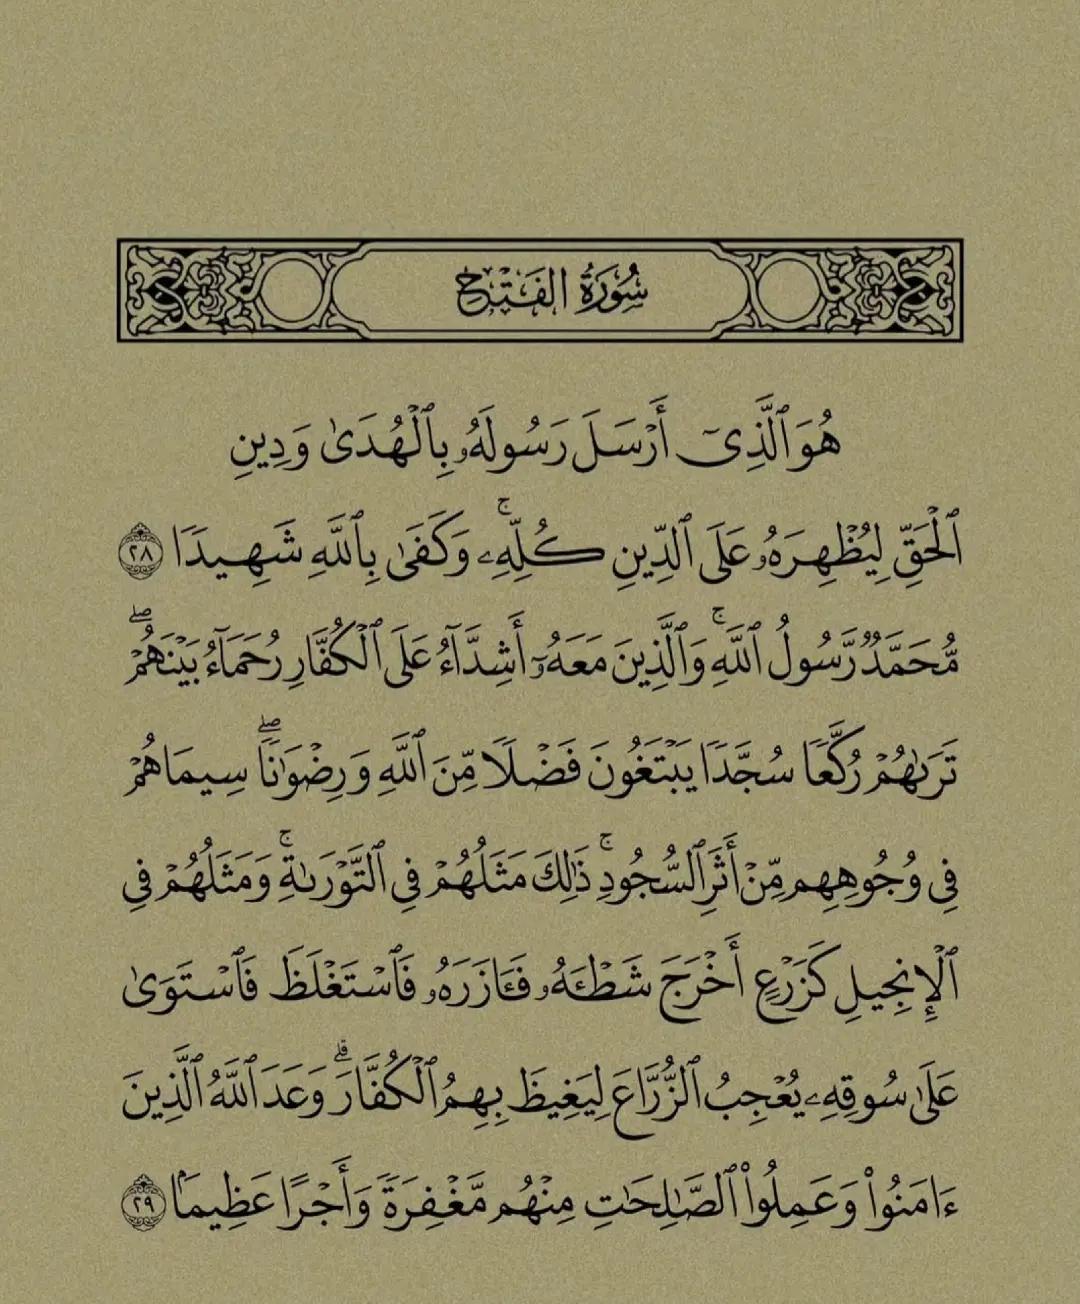 سُورَةُ الفَتْحِ
هُوَ ٱلَّذِىٓ أَرْسَلَ رَسُولَهُۥ بِٱلْهُدَىٰ وَدِينِ
ٱلْحَقِّ لِيُظْهِرَهُۥ عَلَى ٱلدِّينِ كُلِّهِۦ ۚ وَكَفَىٰ بِٱللَّهِ شَهِيدًا ٢٨
مُّحَمَّدٌ رَّسُولُ ٱللَّهِ ۚ وَٱلَّذِينَ مَعَهُۥٓ أَشِدَّآءُ عَلَى ٱلْكُفَّارِ رُحَمَآءُ بَيْنَهُمْ ۖ
تَرَىٰهُمْ رُكَّعًا سُجَّدًا يَبْتَغُونَ فَضْلًا مِّنَ ٱللَّهِ وَرِضْوَٰنًا ۖ سِيمَاهُمْ
فِى وُجُوهِهِم مِّنْ أَثَرِ ٱلسُّجُودِ ۚ ذَٰلِكَ مَثَلُهُمْ فِى ٱلتَّوْرَىٰةِ ۚ وَمَثَلُهُمْ فِى
ٱلْإِنجِيلِ كَزَرْعٍ أَخْرَجَ شَطْـَٔهُۥ فَـَٔازَرَهُۥ فَٱسْتَغْلَظَ فَٱسْتَوَىٰ
عَلَىٰ سُوقِهِۦ يُعْجِبُ ٱلزُّرَّاعَ لِيَغِيظَ بِهِمُ ٱلْكُفَّارَ ۗ وَعَدَ ٱللَّهُ ٱلَّذِينَ
ءَامَنُوا۟ وَعَمِلُوا۟ ٱلصَّـٰلِحَـٰتِ مِنْهُم مَّغْفِرَةً وَأَجْرًا عَظِيمًۢا ٢٩